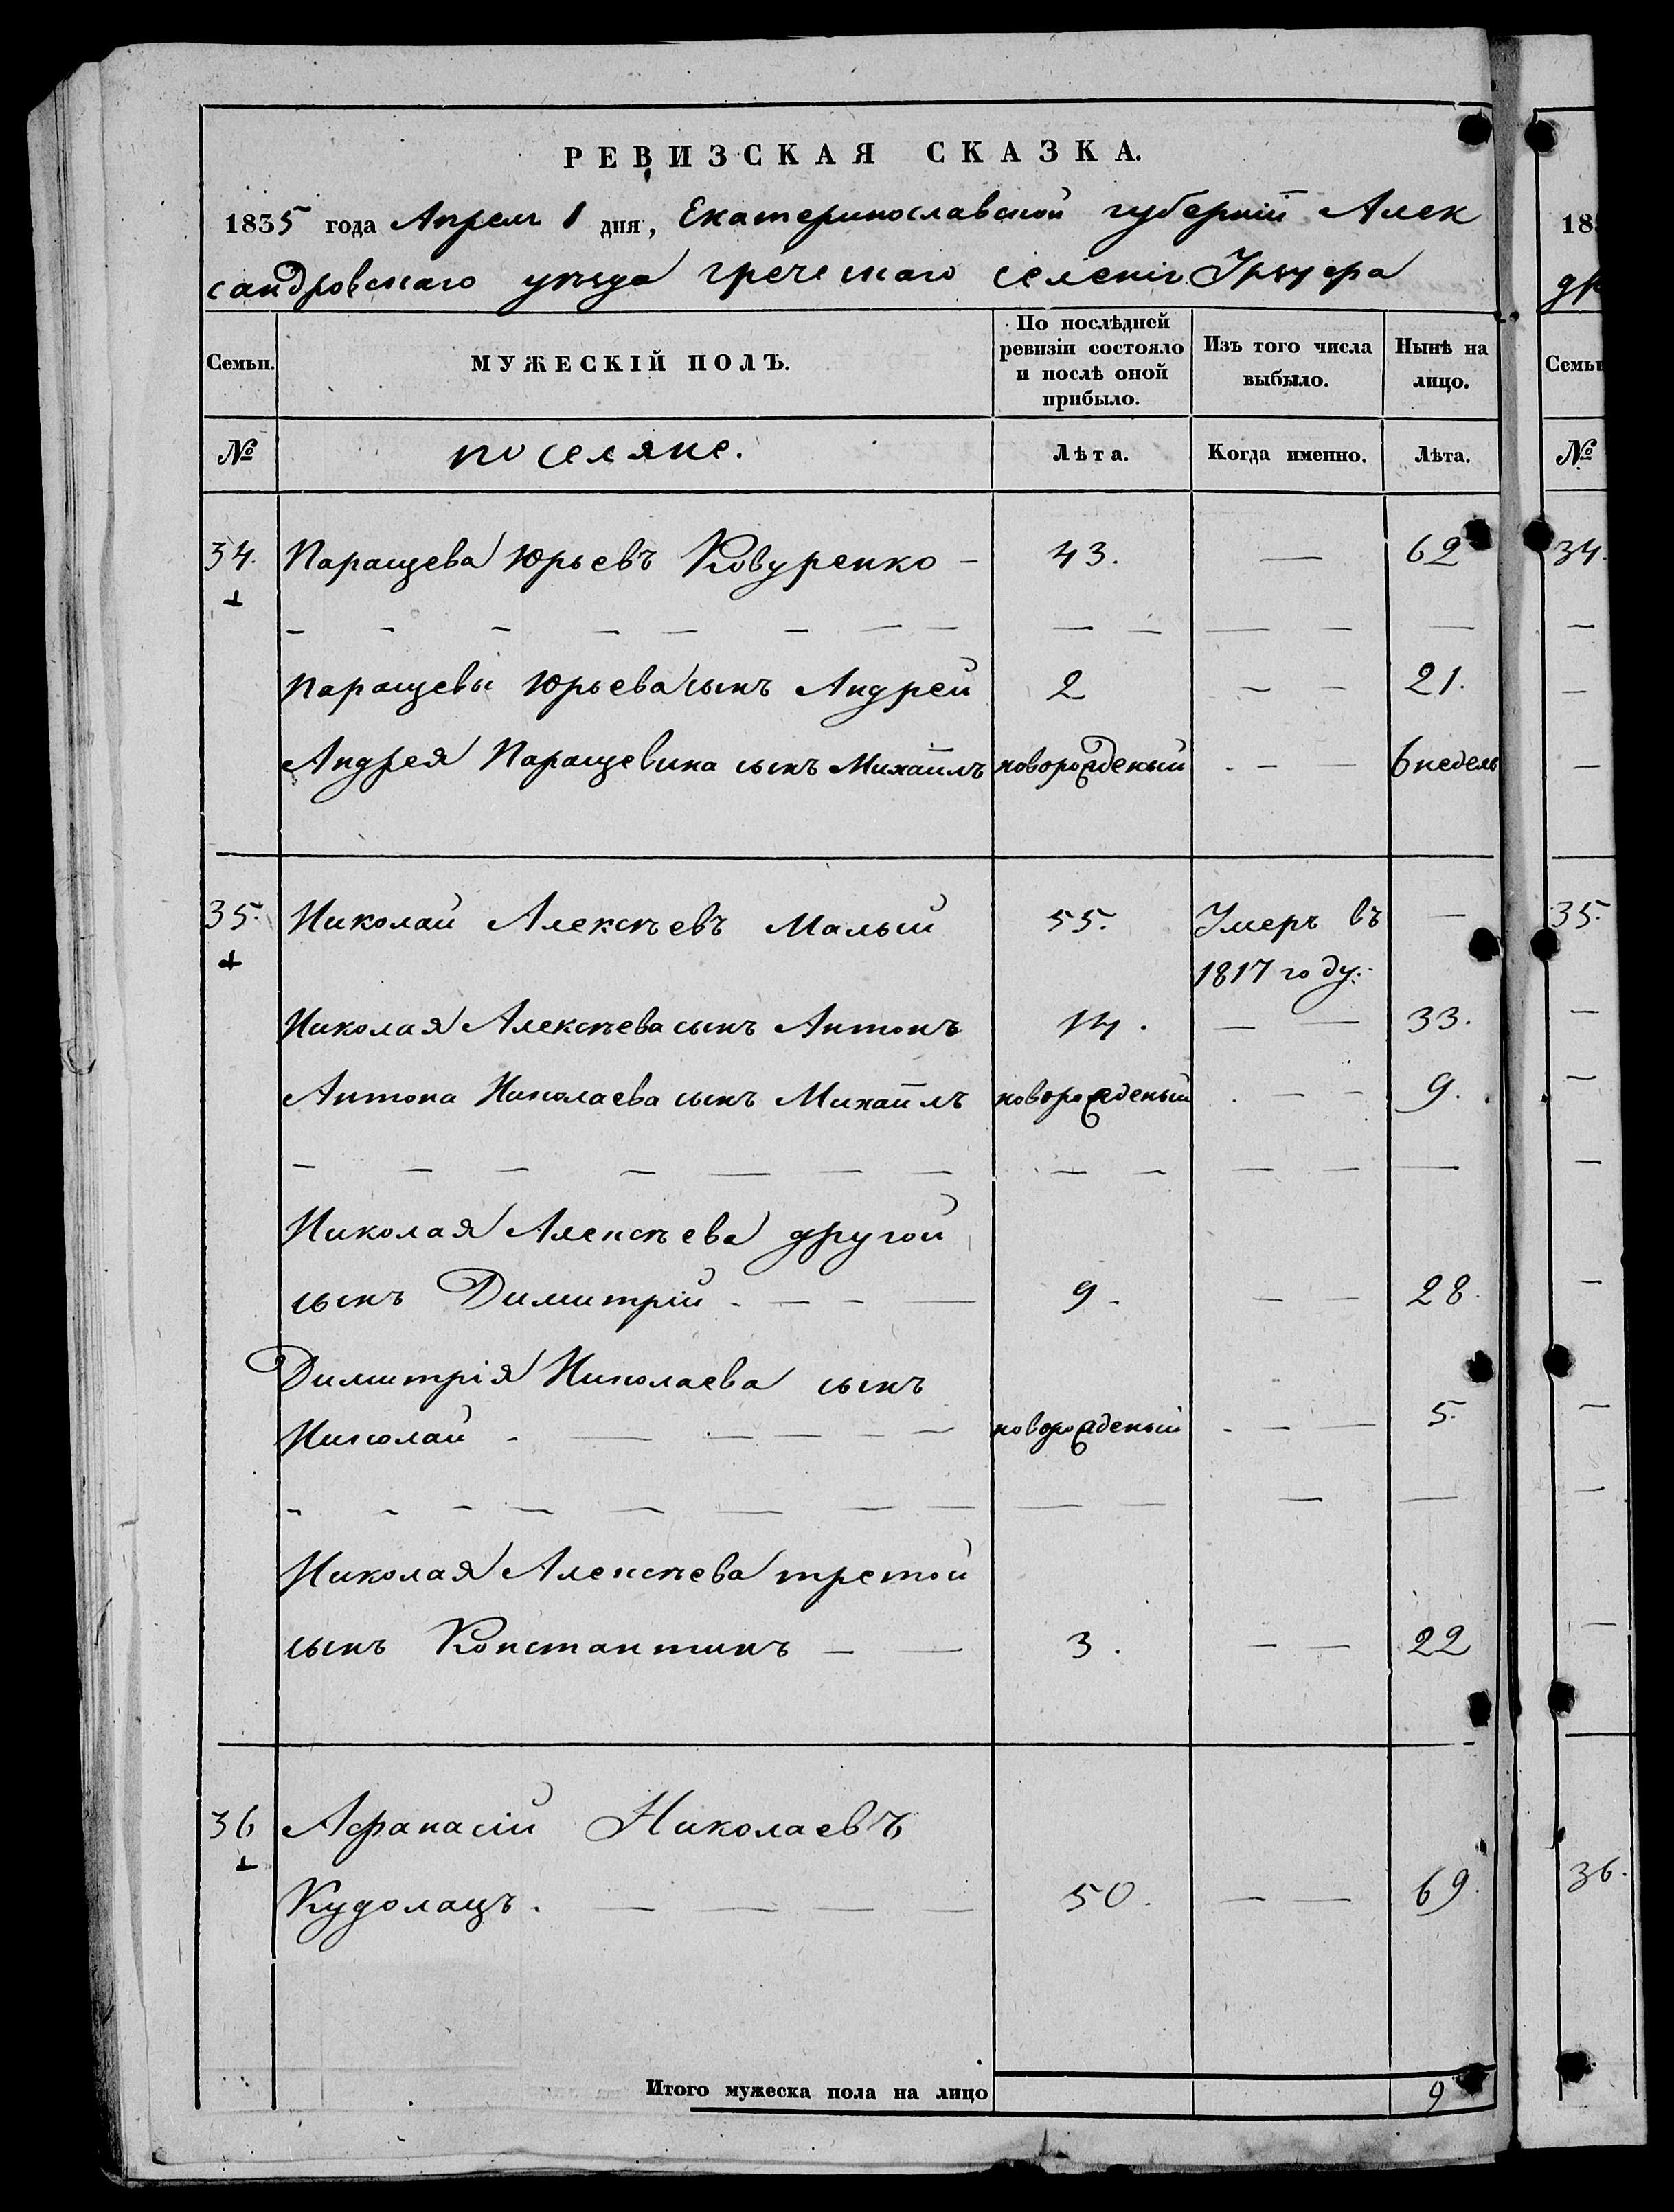 РЕВИЗСКАЯ СКАЗКА.
1835 года Апреля 1 дня, Екатеринославской губерніи Алек
сандровскаго уѣзда греческаго селенія
Семьи. МУЖЕСКІЙ ПОЛЪ. По послѣдней ревизіи состояло и послѣ оной прибыло. Изъ того числа выбыло. Нынѣ на лицо.
№ поселяне. Лѣта. Когда именно. Лѣта.
34. Паращева Юрьевъ Ковуренко - 43. — 62
Паращевы Юрьева сынъ Андрей 2 — — 21.
Андрея Паращевина сынъ Михаилъ новорожденый - — — 6 недель
35. Николай Алексѣевъ Малый 55. Умеръ въ —
1817 году.
Николая Алексѣева сынъ Антонъ 14. — — 33.
Антона Николаева сынъ Михаилъ новорожденый - — — 9.
Николая Алексѣева другой
сынъ Димитрій. — — — 9. — — 28.
Димитрія Николаева сынъ
Николай - — — — — новорожденый - — — 5.
Николая Алексѣева третой
сынъ Константинъ — — 3. — — 22
36 Афанасій Николаевъ
Кудолацъ. — — — — 50. — — 69.
Итого мужеска пола на лицо 9
183
Семьи
№
34.
35.
36.